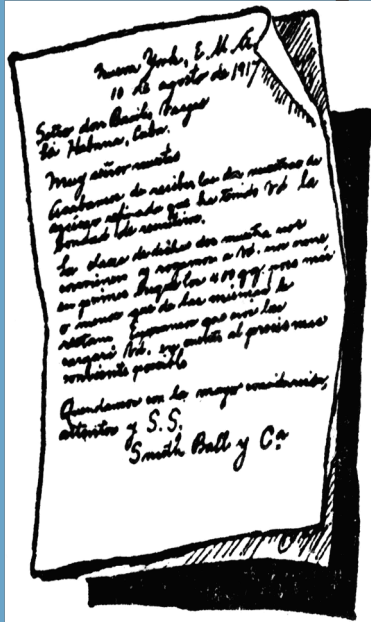 Nueva York, E.U.A.
10 de agosto de 1917
Señor don Basilio Vargas
La Habana, Cuba.
Muy señor nuestro
Acabamos de recibir las dos muestras de
azúcar refinado que ha tenido Vd. la
bondad de remitirnos.
La clase de dichas dos muestra nos
conviene y rogamos a Vd. nos
en primer lugar los 400 qq. poco más
o menos que de las mismas le
restan. Esperamos que nos las
cargará Vd. en cuenta al precio mas
conveniente posible
Quedamos con la mayor consideración,
attentos y S.S.
Smith Ball y Cª